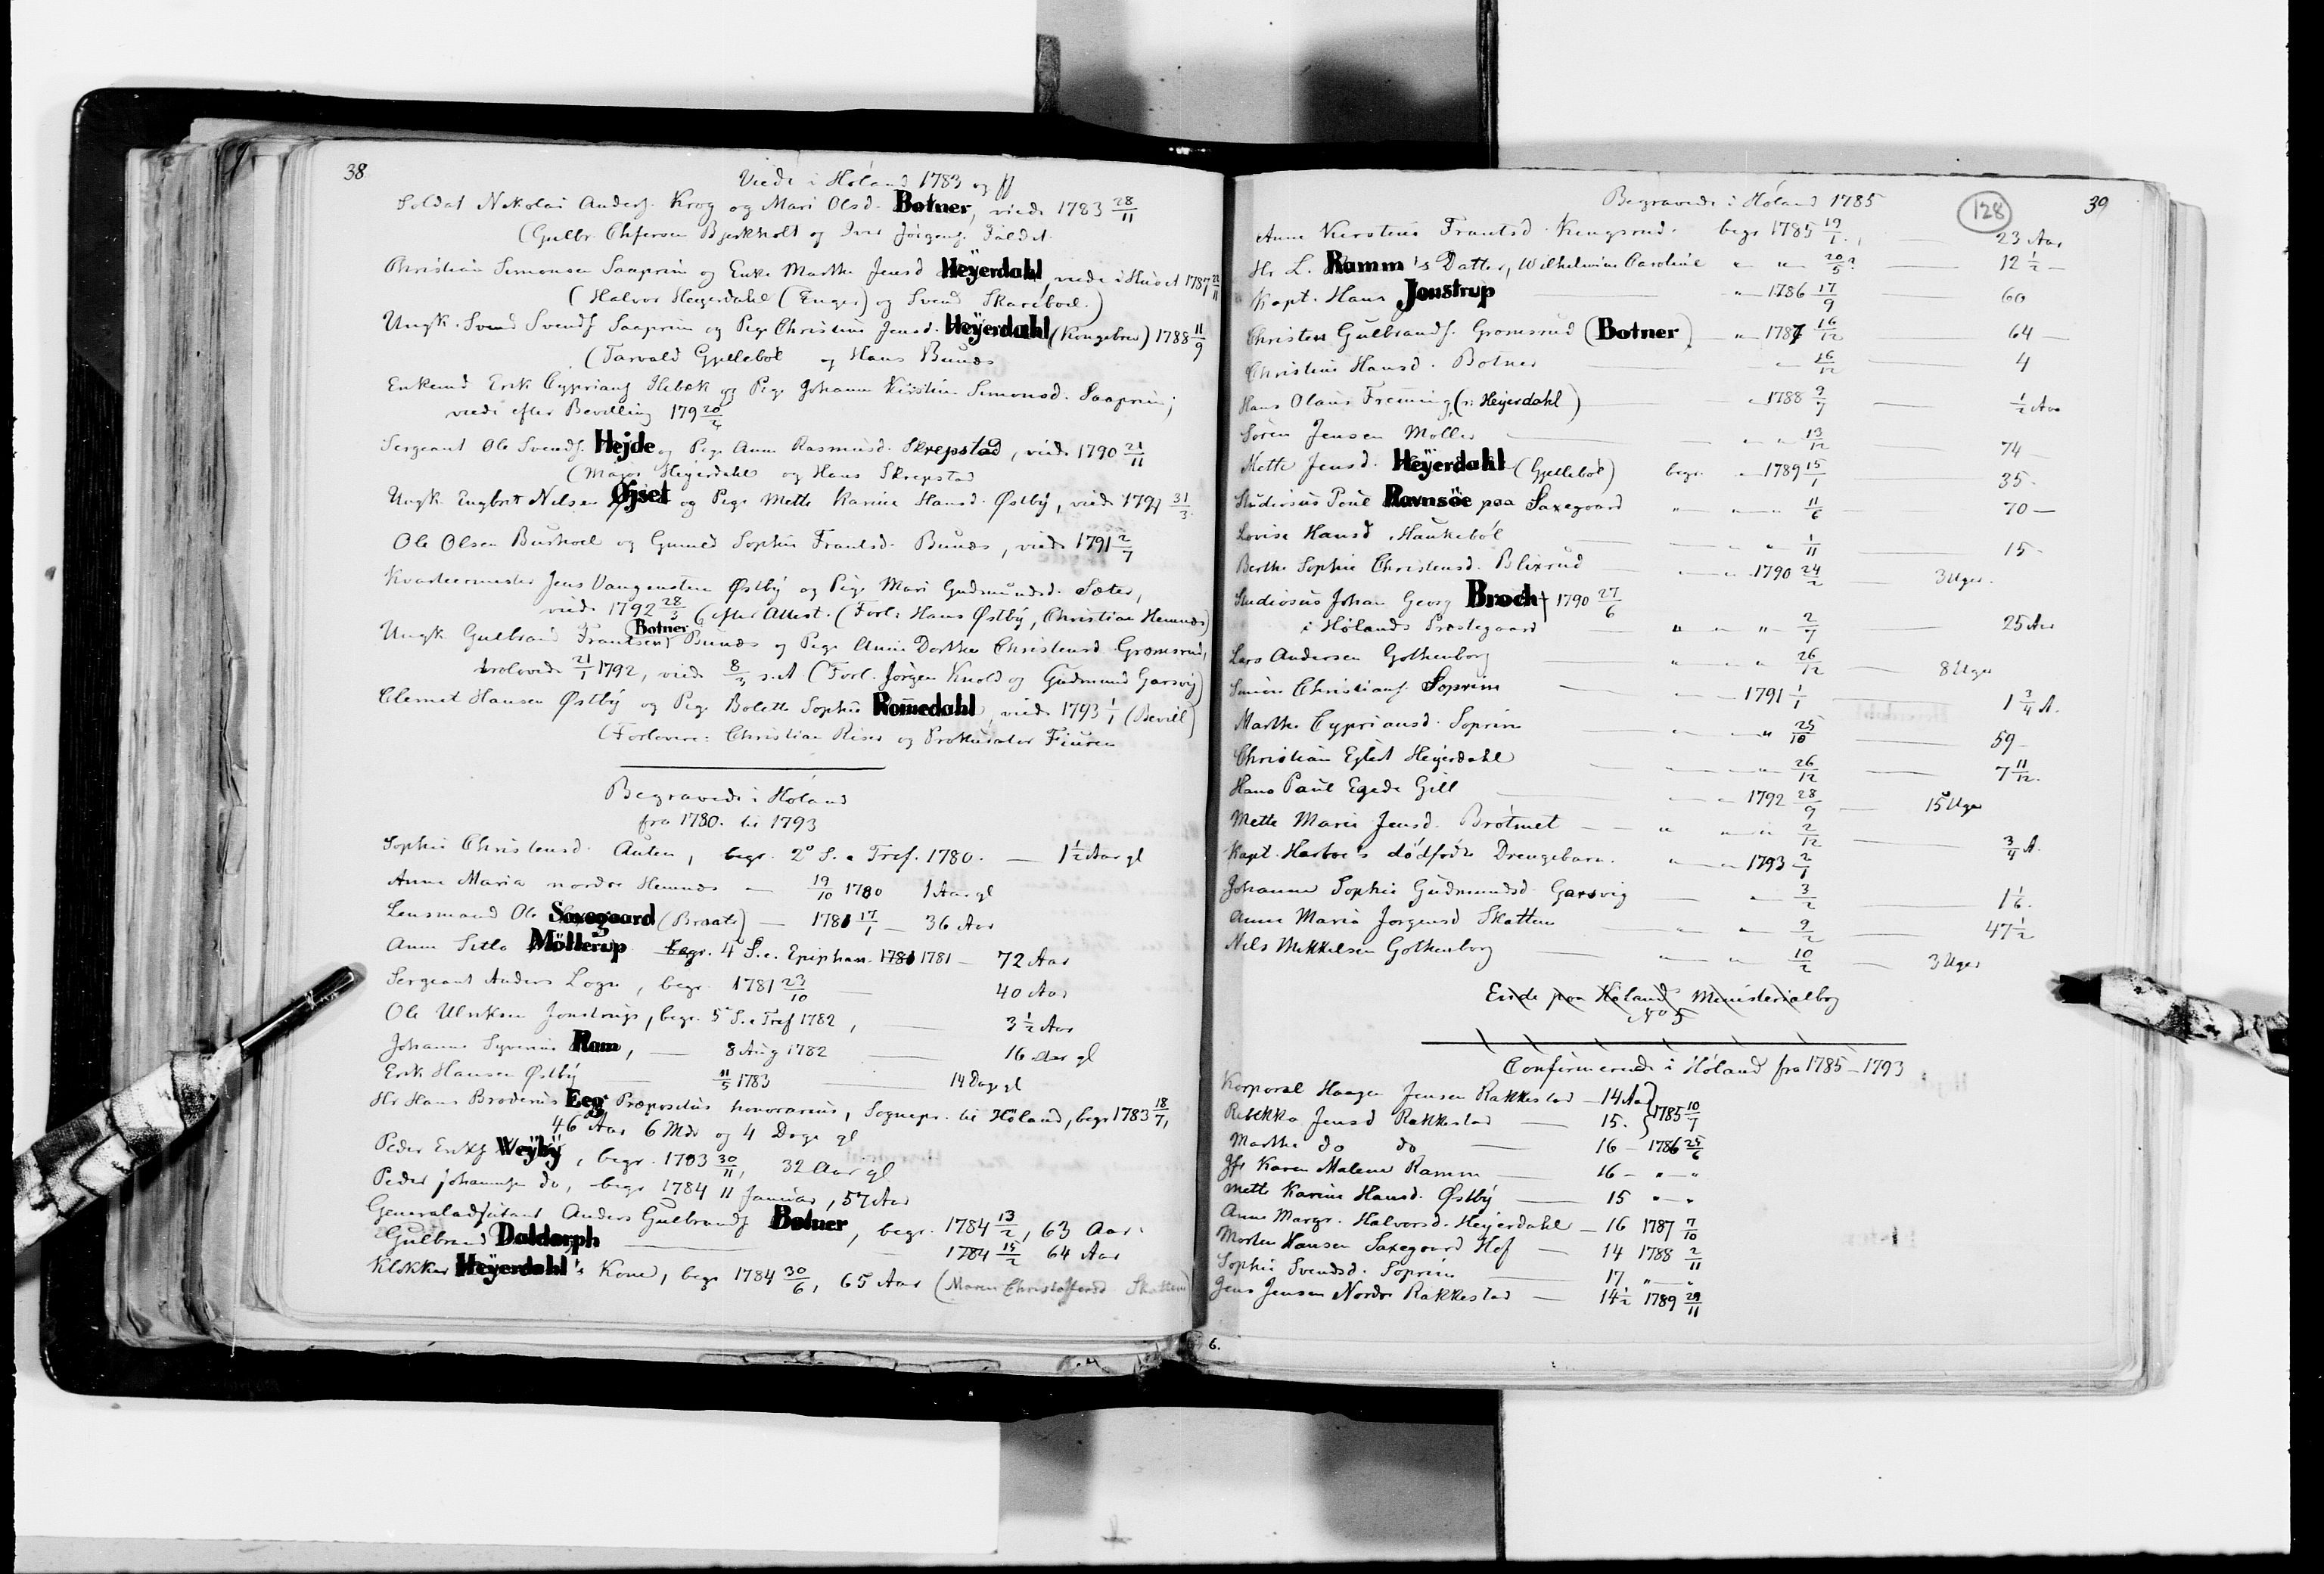 38
Viede i Höland 1783 og ff
Soldat Nikolai Andersf. Krog og Mari Olsd. Botner, viede 1783 28/11
(Gulbr. Chfersen Bjerkholt og Iver Jörgensf. Faldet.
Christian Simonsen Saaprim og Enke Marthe Jensd Heÿerdahl, viede i Huset 1787
(Halvor Heyerdahl (Enger) og Svend Skareböl.)
Ungk. Svend Svendsf Saaprim og Pige Christine Jensd. Heÿerdahl (Kongebrev) 1788 11/9
(Tarvald Gjelleböl og Hans Bunæs
Enkemd Erik Cypriansf Ilebæk og Pige Johanne Kirstine Simonsd. Saaprim;
viede efter Bevilling 179
Sergeant Ole Svendsf. Hejde og Pige Anne Rasmusd. Skrepstad, viede 1790 21/11
(Major Heyerdahl og Hans Skrepstad
Ungk. Engbret Nilsen Øjset og Pige Mette Karine Hansd. Østbÿ, viede 1791 31/3
Ole Olsen Burhoel og Gunild Sophie Frantsd. Bunæs, viede 1791 2/7
Kvarteermester Jens Vangensteen Østbÿ og Pige Mari Gudmundsd. Sæter,
viede 1792 28/3 (efter Attest. (Forl: Hans Østbÿ, Christian Hemnæs)
Ungk. Gulbrand Frantsen (Botner) Bunæs og Pige Anne Dorthea Christensd. Gromsrud,
trolovede 21/1 1792, viede 8/3 s.A. (Forl. Jörgen Knold og Gudmund Garsvig)
Clemet Hansen Østbÿ og Pige Bolette Sophie Romedahl, viede 1793 1/1 (Bevill)
(Forlovere: Christian Riser og Prokurator Fiuren
Begravede i Höland
fra 1780. til 1793
Sophie Christensd. Auten, begr. 2° S. e Tref. 1780. — 1½ Aar gl
Anne Maria nordre Hemnæs — 19/10 1780 1 Aar gl
Lensmand Ole Saxegaard (Braate) — 1781 17/1 — 36 Aar
Anne Sitle Möllerup begr. 4° S. e. Epiphan. 1781 1781 — 72 Aar
Sergeant Anders Logn, begr. 1781 23/10 — 40 Aar
Ole Ulriksen Jonstrup, begr. 5° S. e Tref 1782, — 3½ Aar
Johanne Syverine Ram, — 8 Aug 1782 — 16 Aar gl
Erik Hansen Østbÿ — 11/5 1783 — 14 Dage gl
Hr Hans Broderus Eeg Præpositus honorarius, Sognepr. til Höland, begr 1783 18/7,
46 Aar 6 Mdr og 4 Dage gl
Peder Eriksf Weÿbÿ, begr. 1783 30/11, 32 Aar gl
Peder Johannsen do, begr 1784 11 Januar, 57 Aar
Generaladjutant Anders Gulbrandsf Botner, begr. 1784 13/2, 63 Aar.
Gulbrand Daldorph — 1784 15/2 64 Aar
Klokker Heÿerdahl's Kone, begr 1784 30/6, 65 Aar (Maren Christoffersd. Skatten)
39
128
Begravede i Höland 1785
Anne Kirstine Frantsd. Kingsrud. begr 1785 19/1., — 23 Aar
Hr L. Ramm's Datter, Wilhelmine Caroline " " 20/5? — 12½ —
Kapt. Hans Jonstrup " 1786 17/9 — 60
Christen Gulbrandsf. Gromsrud (Botner) — " 1787 16/12 — 64 —
Christine Hansd. Botner — " 16/12 — 4
Hans Olaus Freming (o: Heyerdahl) — " 1788 9/7 — ½ Aar
Sören Jensen Möller — " " 13/12 — 74
Mette Jensd. Heÿerdahl (Gjelleböl) begr. " 1789 15/1 — 35.
Studiosus Poul Ravnsöe paa Saxegaard " " " 11/6 — 70 —
Lovise Hansd. Haukeböl — " " 1/11 — 15.
Berthe Sophie Christensd. Blixrud — " 1790 24/2 — 3 Uger.
Studiosus Johan Georg Broch † 1790 27/6
i Hölands Præstegaard — " " " 2/7 — 25 Aar
Lars Andersen Gothenborg — " " " 26/12 — 8 Uger
Simen Christiansf. Soprim — " 1791 1/1 — 1¾ A.
Marthe Cypriansd. Soprim — " " 25/10 — 59
Christian Eylert Heyerdahl — " " 26/12 — 7 11/12.
Hans Paul Egede Gill — " 1792 28/9 — 15 Uger
Mette Marie Jensd. Brötmet — " " " 2/12 — ¾ A.
Kapt. Harboe's dödfödte Drengebarn. " " 1793 2/1
Johanne Sophie Gudmundsd. Garsvig — " 3/2 — 1 1/6.
Anne Maria Jorgensd. Skatten — " " 9/2 — 47½
Nils Mikkelsen Gothenborg — " " 10/2 — 3 Uger
Ende paa Hølands Ministerialbog
No 5
Confirmerede i Höland fra 1785–1793
Korporal Haagen Jensen Rakkestad — 14 Aar } 1785 10/7
Rebekka Jensd Rakkestad — 15.
Marthe do do — 16 — 1786 25/6
Jfr Karen Malene Ramm — 16 — " — "
Mette Karine Hansd. Østbÿ — 15 " — "
Anne Margr. Halvorsd. Heyerdahl — 16 1787 7/10
Morten Hansen Saxegaard Hof — 14 1788 2/11
Sophie Svendsd. Soprim — 17 " — "
Jens Jensen Nordre Rakkestad — 14½ 1789 29/11
6.